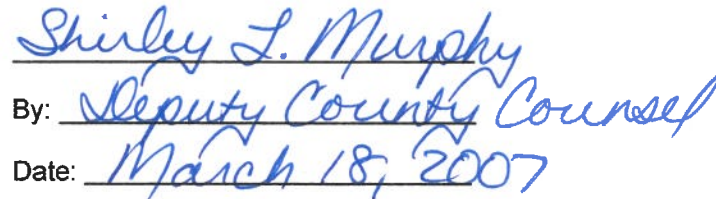 Shirley L. Murphy
By: Deputy County Counsel
Date: March 18, 2007